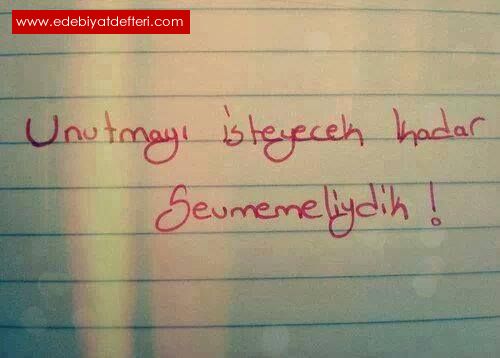 www.edebiyatdefteri.com
Unutmayı isteyecek kadar
Sevmemeliydik !